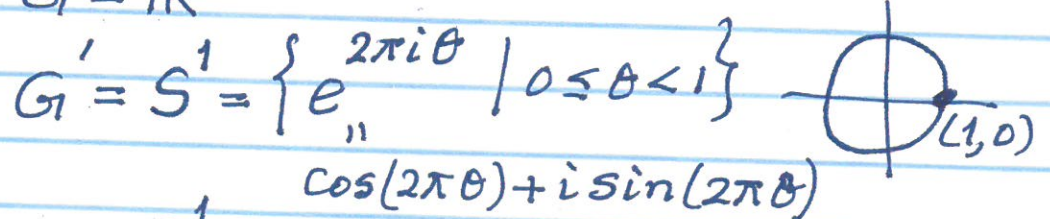 G' = S¹ = { e^{2πiθ} | 0 ≤ θ < 1 }
(1,0)
"
cos(2πθ) + i sin(2πθ)